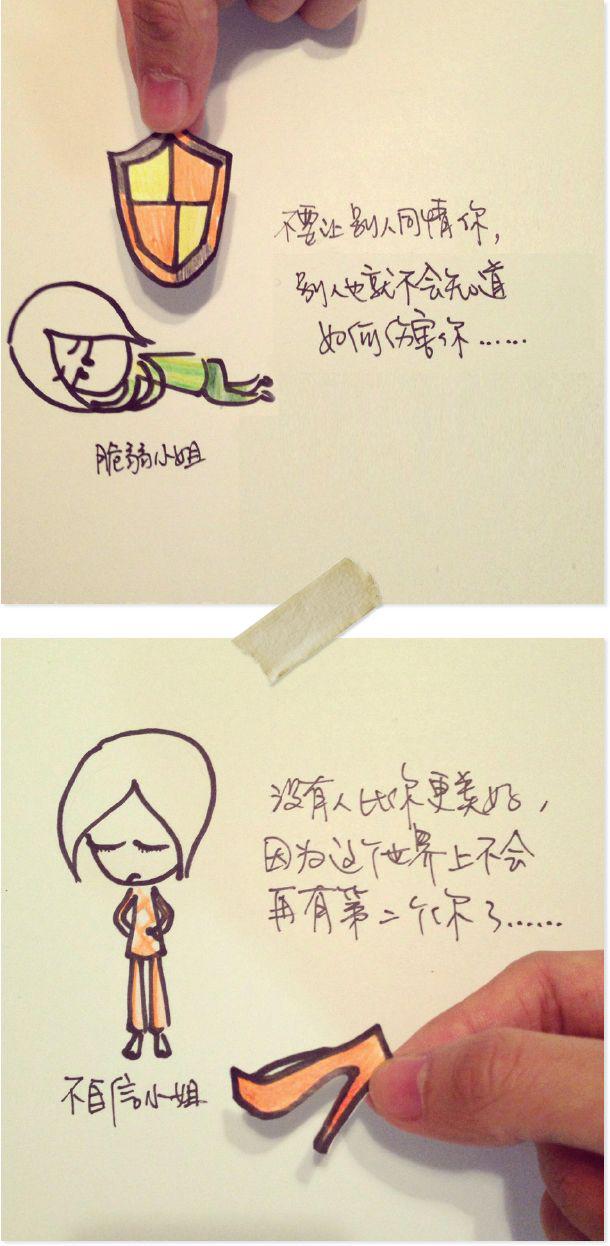 不要让别人同情你，
别人也就不会知道
如何伤害你……
脆弱小姐
没有人比你更美好，
因为这个世界上不会
再有第二个你了……
不自信小姐